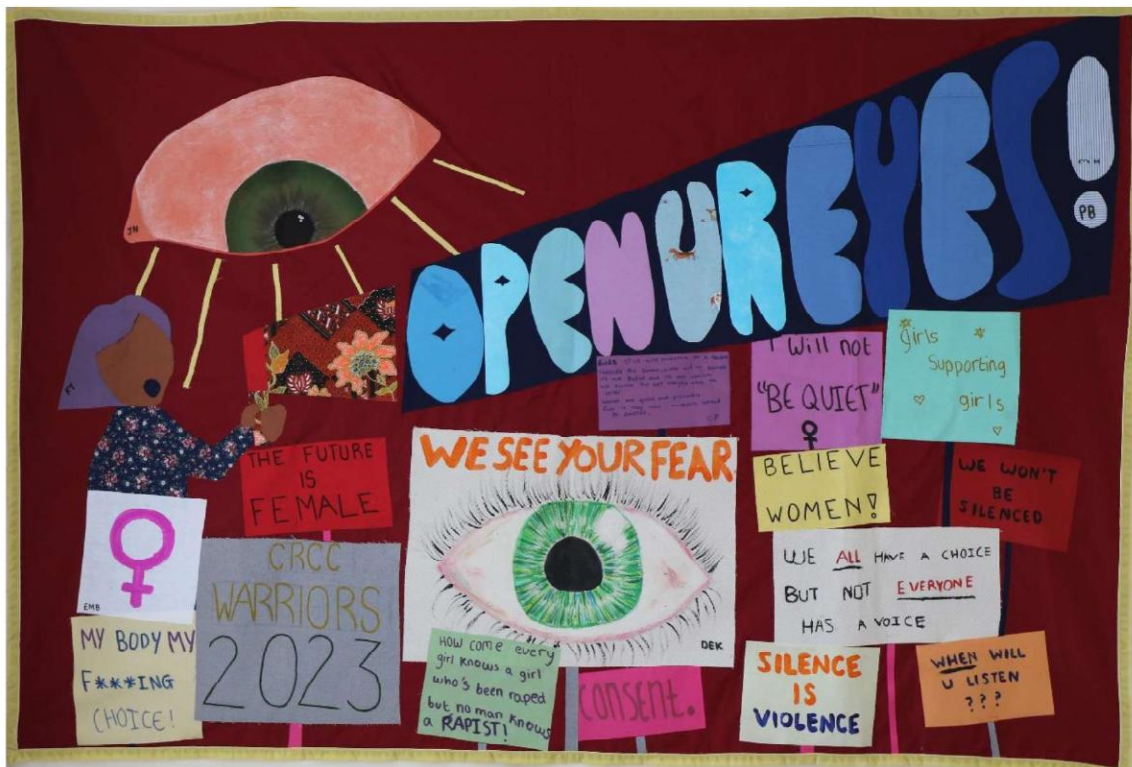 OPEN UR EYES!
JN
MH
PB
I Will not
"BE QUIET"
girls
Supporting
girls
THE FUTURE
IS
FEMALE
WE SEE YOUR FEAR
DEK
BELIEVE
WOMEN!
WE WON'T
BE
SILENCED
EMB
CRCC
WARRIORS
2023
WE ALL HAVE A CHOICE
BUT NOT EVERYONE
HAS A VOICE
MY BODY MY
F***ING
CHOICE!
HOW COME every
girl knows a girl
who's been raped
but no man knows
a RAPIST!
CONSENT.
SILENCE
IS
VIOLENCE
WHEN WILL
U LISTEN
???